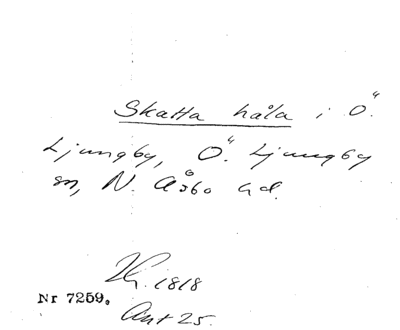 Skatta håla i Ö.
Ljungby, Ö. Ljungby
sn, N. Åsbo hd.
1818
Nr 7259.
Ant 25.